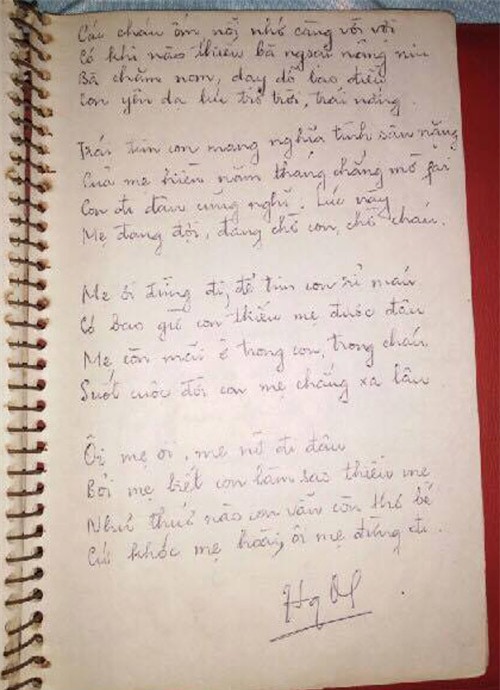 Các cháu ốm, nỗi nhớ càng vời vợi
Có khi nào thiếu bà ngoại nâng niu
Bà chăm nom, dạy dỗ bao điều
Con yên dạ lúc trở trời, trái nắng.
Trái tim con mang nghĩa tình sâu nặng
Của mẹ hiền năm tháng chẳng mờ fai
Con đi đâu cũng nghĩ. Lúc này
Mẹ đang đợi, đang chờ con, chờ cháu.
Mẹ ơi đừng đi, để tim con rỉ máu
Có bao giờ con thiếu mẹ được đâu
Mẹ còn mãi ở trong con, trong cháu
Suốt cuộc đời con mẹ chẳng xa lâu
Ôi mẹ ơi, mẹ nỡ đi đâu
Bởi mẹ biết con làm sao thiếu mẹ
Như thuở nào con vẫn còn thơ bé
Cứ khóc mẹ hoài, ôi mẹ đừng đi.